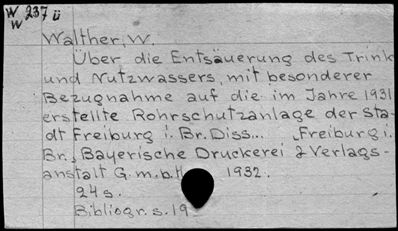 W 237 ü
W
Walther, W.
Über die Entsäuerung des Trink
und Nutzwassers, mit besonderer
Bezugnahme auf die im Jahre 1931
erstellte Rohrschutzanlage der Sta-
dt Freiburg i. Br. Diss... Freiburg i.
Br., Bayerische Druckerei & Verlags-
anstalt G.m.b.H 1932.
24 s.
Bibliogr. s. 19